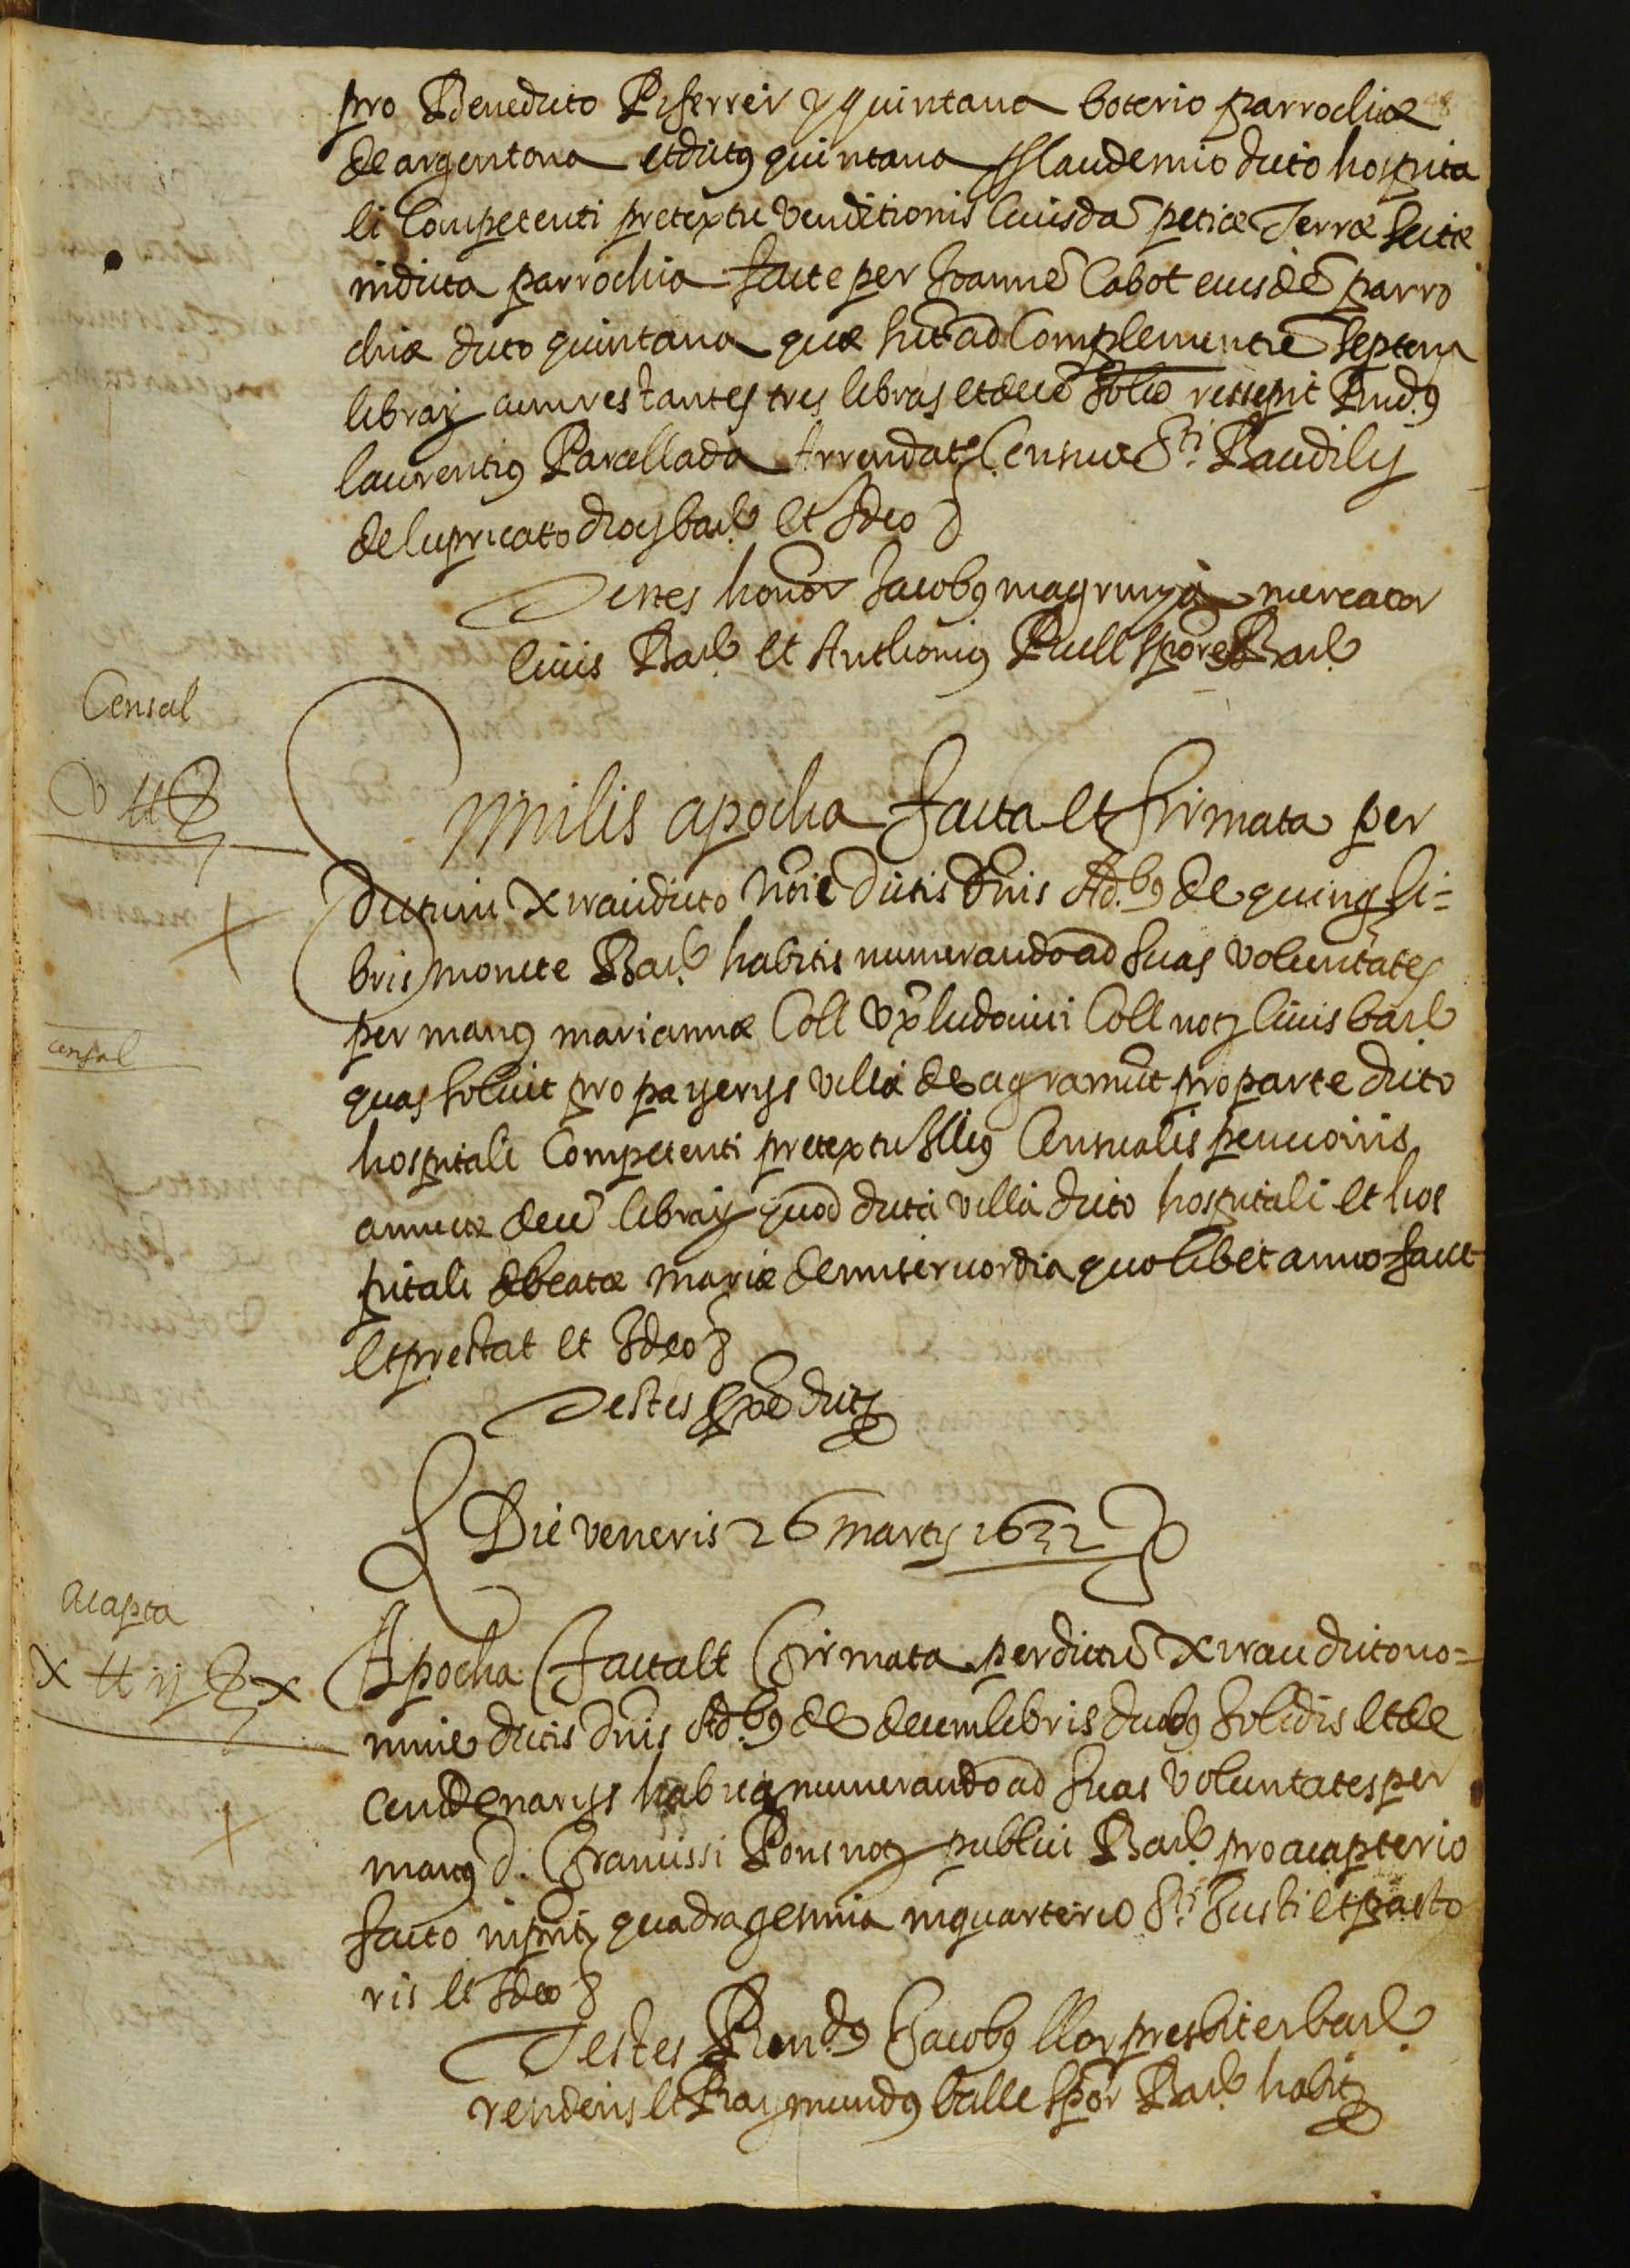 pro Benedicto Riferrer y quintana boterio parrochiæ
de argentona et dictus quintana laudemio dicto hospita
li Competenti pretextu venditionis Cuiusdã petiæ Terræ sitæ
in dicta parrochia facte per Joannẽ Cabot eiusdẽ parro
chiæ dicto quintana quæ sũt ad Complementũ septem
libraȝ cum restantes tres libras et decẽ solid ressepit Rndus
laurentius Parellada Arrendatʳ Censuũ Sti Baudilij
de lupricato diocȝ barᵉ et Ideo
Testes honor Jacobus magrinya mercator
Civis Barᵉ et Anthonius Puell scpr Barᵉ
Censal
V ll s
Similis apocha facta et firmata per
dictum Xirau dicto nõie dictis dnis Adbus de quinqȝ li=
bris monete Barᵉ habitis numerando ad suas voluntates
per manus mariannæ Coll vx ludovici Coll notȝ Civis barᵉ
censal
quas solvit pro payerijs villæ de agramũt pro parte dicto
hospitali Competenti pretextu Illius Censualis pencionis
annuæ decẽ libraȝ quod dicta villa dicto hospitali et hos
pitali beatæ mariæ de misericordia quolibet anno facit
et prestat et Ideo
Testes pdictȝ
Die veneris 26 martij 1632
acapta
X ll ij s x
Apocha facta et firmata per dictũ Xirau dicto no=
mine dictis dnis Adbus de decem libris duobus solidis et de
cem denarijs habitis numerando ad suas voluntates per
manus d. Francissi Pons notȝ publici Barᵉ pro acapterio
facto in pntȝ quadragesima in quarterio Sti Justi et pasto
ris et Ideo
Testes Rendus Jacobus llor presbiter barᵉ
rendens et Raymundus balle scpr Barᵉ habitȝ